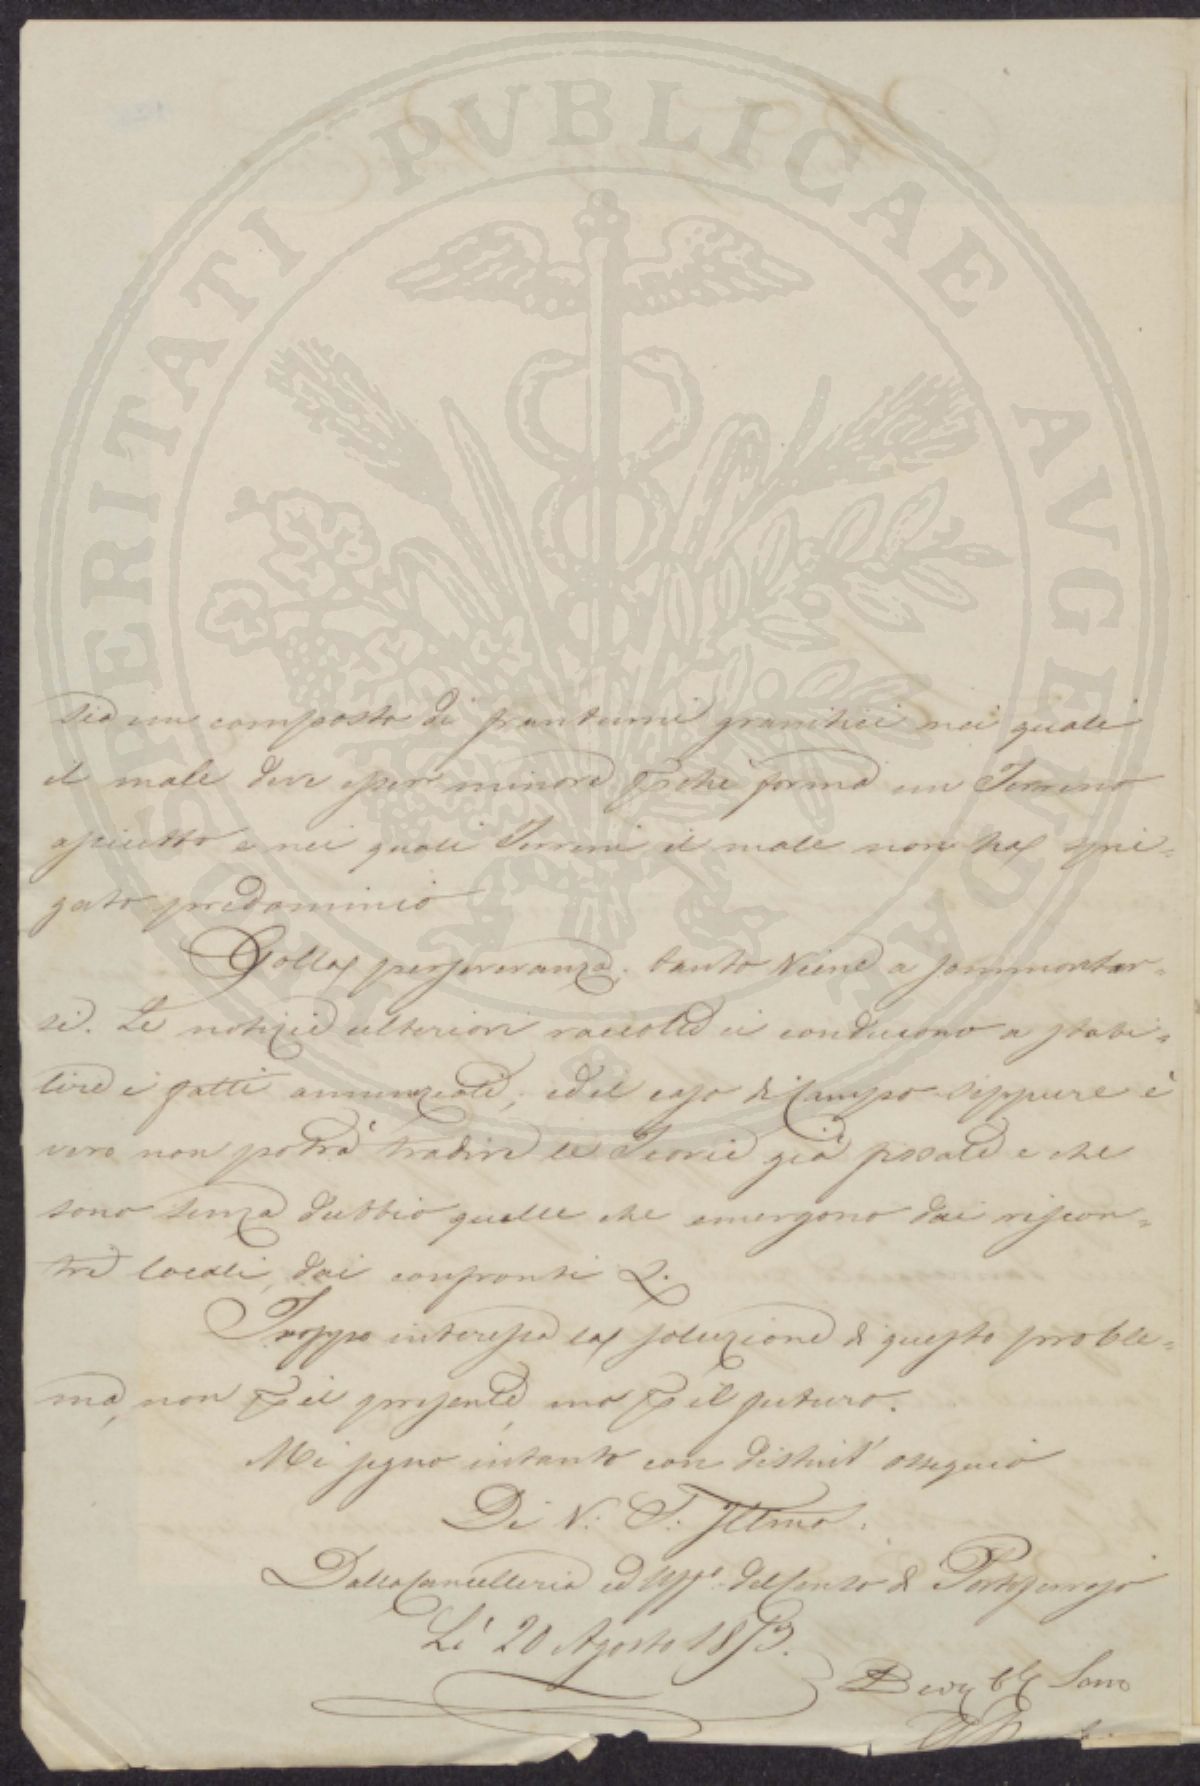 PROSPERITATI PVBLICAE AVGENDAE
sia un composto di frantumi granitici nei quali
il male deve esser minore perchè forma un Terreno
asciutto e nei quali Terreni il male non ha spie=
gato predominio
Colla perseveranza tanto viene a sommontar=
si. Le notizie ulteriori raccolte ci conducono a stabi=
lire i fatti annunziati; ed il caso di Campo seppure è
vero non potrà tradire le Teorie già fissate e che
sono senza dubbio quelle che emergono dai riscon=
tri locali, dai confronti &.
Troppo interessa la soluzione di questo proble=
ma, non per il presente, ma per il futuro.
Mi segno intanto con distint' ossequio
Di V. S. Illma.
Dalla Cancelleria ed Uffo. del Censo di Portoferrajo
Li 20 Agosto 1853.
Devmo Obbmo Servo